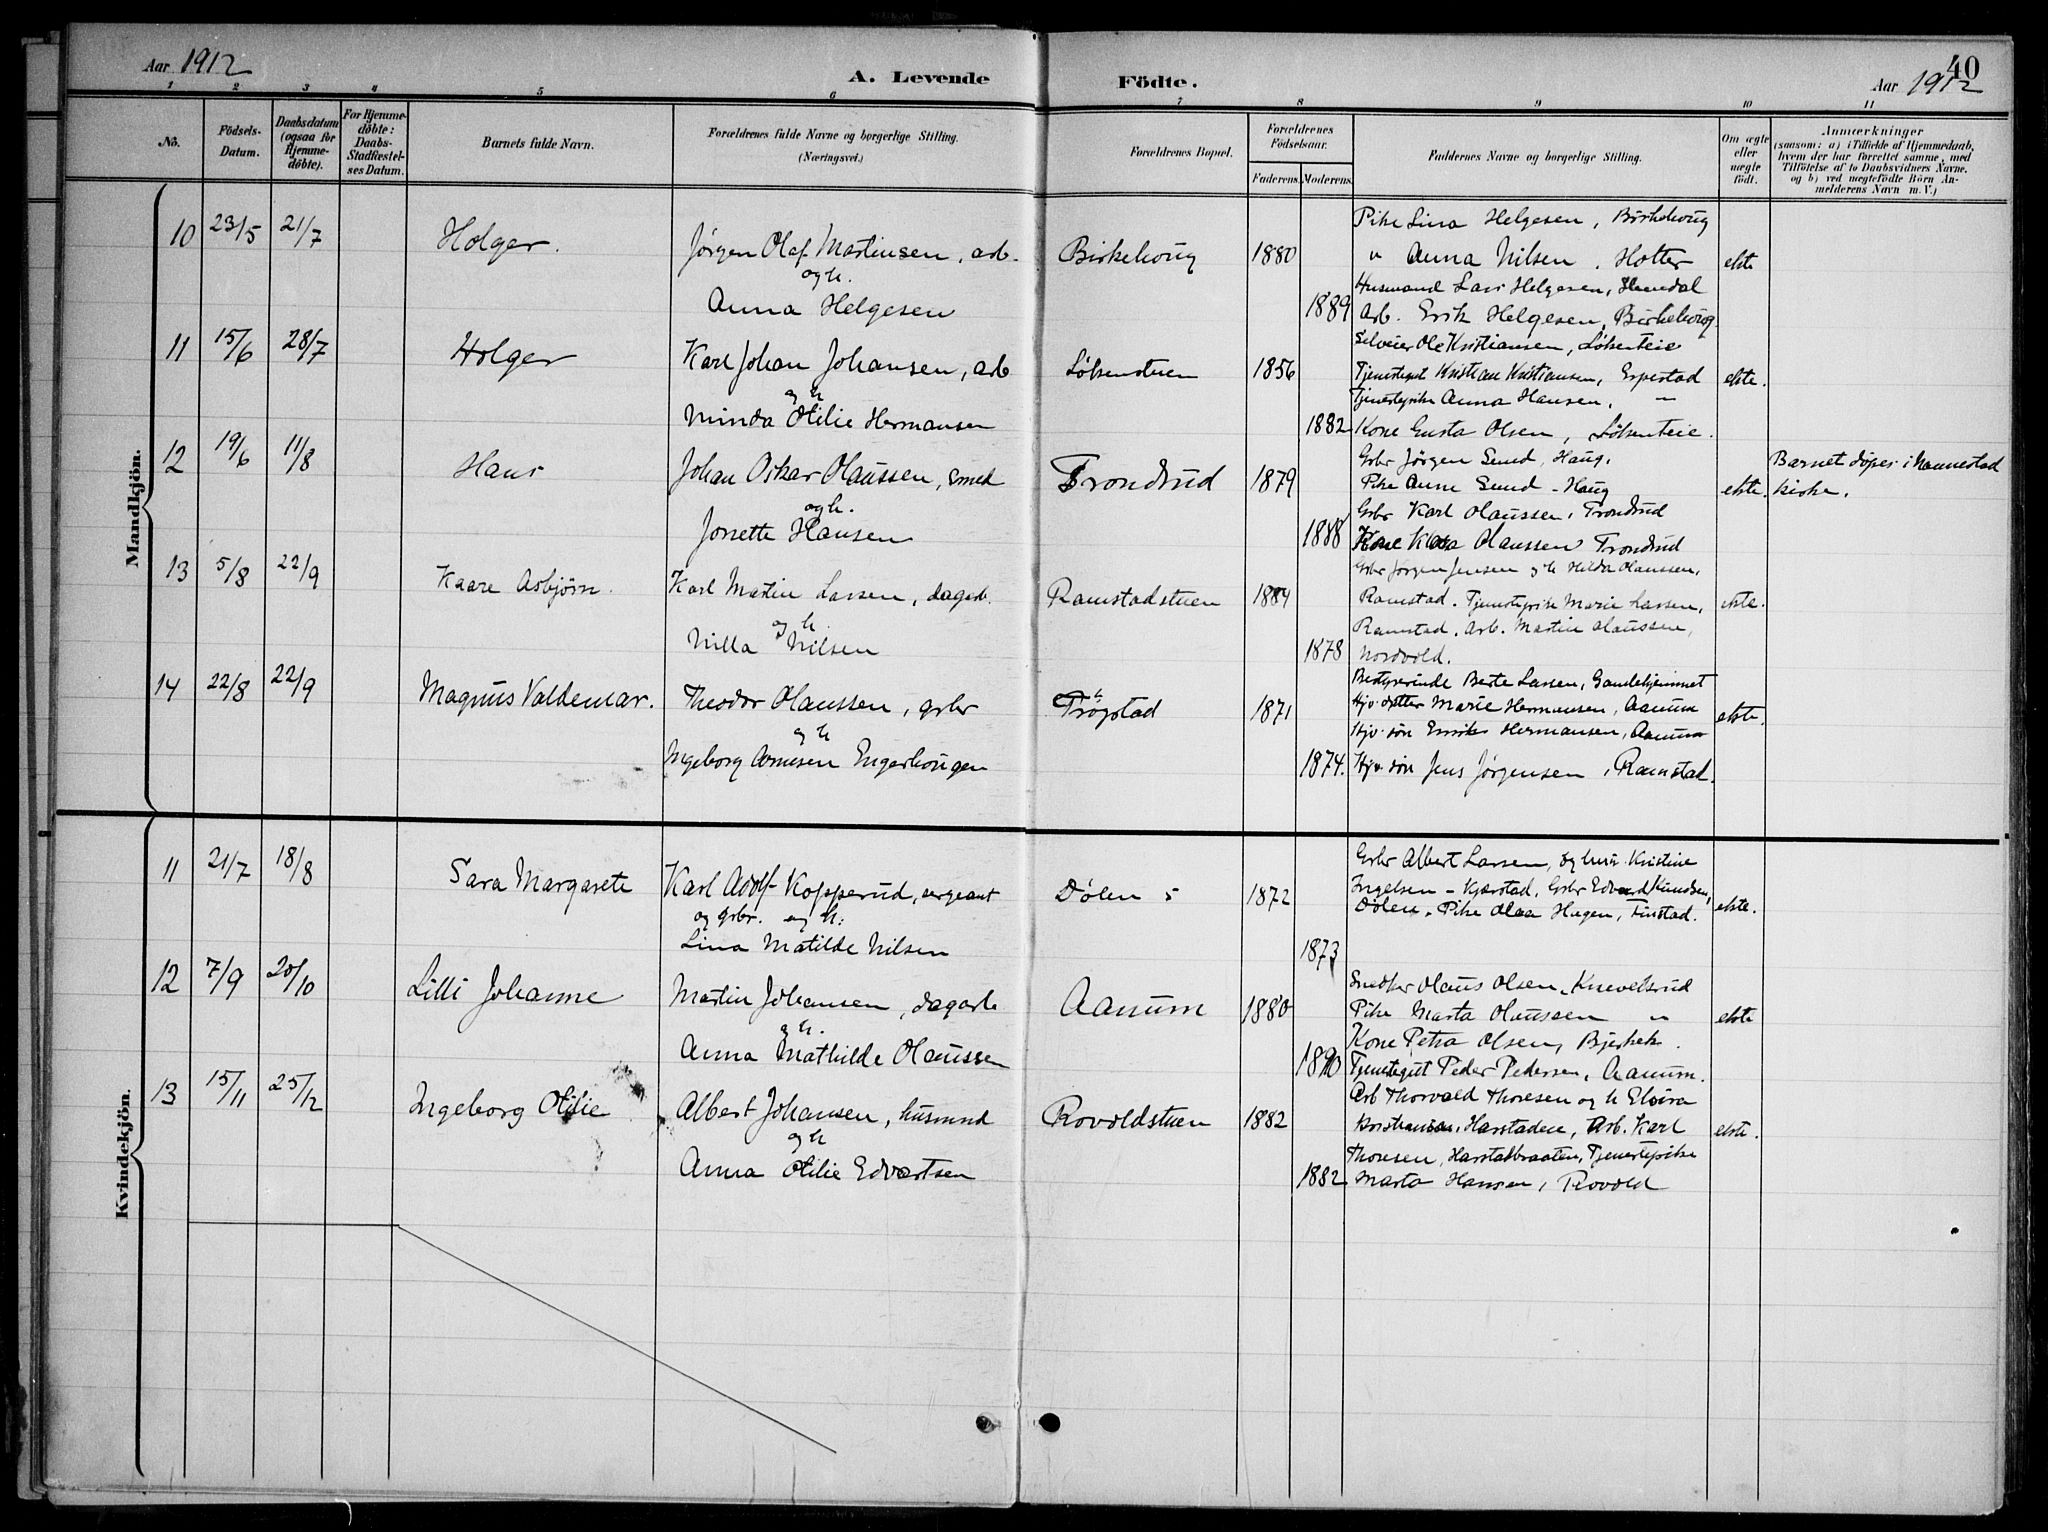 Aar 1912
A. Levende
Födte.
Aar 1912
40
1 2 3 4 5 6 7 8 9 10 11
No.
Födsels-
Datum.
Daabsdatum
(ogsaa for
Hjemme-
döbte).
For Hjemme-
döbte:
Daabs-
Stadfæstel-
ses Datum.
Barnets fulde Navn.
Forældrenes fulde Navne og borgerlige Stilling.
(Næringsvei.)
Forældrenes Bopæl.
Forældrenes
Födselsaar.
Faderens. Moderens.
Faddernes Navne og borgerlige Stilling.
Om ægte
eller
uægte
födt.
Anmærkninger
(saasom: a) i Tilfælde af Hjemmedaab,
hvem der har forrettet samme, med
Tilföielse af to Daabsvidners Navne.
og b) ved uægtefödte Börn An-
melderens Navn m. V.)
Mandkjön.
10 23/5 21/7 Holger.
Jørgen Olaf Martinsen, arb.
og h.
Anna Helgesen
Birkehoug 1880
1889
Pike Lina Helgesen, Birkehoug
" Anna Nilsen, Holter
Husmand Lars Helgesen,
Arb. Erik Helgesen, Birkehoug.
ekte
11 15/6 28/7 Holger
Karl Johan Johansen, arb
og h
Minda Otilie Hermansen
Løkenstuen 1856
1882
Selveier Ole Kristiansen, Løkenteie
Tjenestegut Kristian Kristiansen, Erpestad
Tjenestepike Anna Hansen, "
Kone Gusta Olsen, Løkenteie.
ekte.
12 19/6 11/8 Hans
Johan Oskar Olaussen, smed
og h.
Josette Hansen
Trondrud 1879
1888
Grbr Jørgen Sund, Haug.
Pike Anne Sund - Haug
Grbr Karl Olaussen, Trondrud
Kone Kaia Olaussen Trondrud
ekte.
Barnet døpes i Nannestad
kirke.
13 5/8 22/9 Kaare Asbjørn.
Karl Martin Larsen, dagarb.
og h.
Nilla Nilsen
Ramstadstuen 1884
1878
Grbr Jørgen Jensen og h Hilda Olaussen,
Ramstad. Tjenestepike Marie Larsen,
Ramstad, Arb. Martin Olaussen,
Nordvold.
ekte.
14 22/8 22/9 Magnus Valdemar.
Theodor Olaussen, grbr
og h
Ingeborg Arnesen Engerhougen
Trøgstad 1871
1874.
Bestyrerinde Berte Larsen, Gamlehjemmet
Hjv. datter Marie Hermansen, Aanum
Hjv. søn Hermansen, Aanum
Hjv. søn Jens Jørgensen, Ramstad.
ekte.
Kvindekjön.
11 21/7 18/8 Sara Margarete
Karl Adolf Kopperud, sergeant
og grbr. og h:
Lina Matilde Nilsen
Dølen s 1872
1873
Grbr Albert Larsen, og hust. Kristine
Ingelsen - Kjærstad, Grbr Edvard Knudsen,
Dølen, Pike Olea Hagen, Finstad.
ekte.
12 7/9 20/10 Lilli Johanne
Martin Johansen, dagarb
og h.
Anna Mathilde Olaussen
Aanum 1880
1890
Snedker Olaus Olsen, Knevelsrud
Pike Marta Olaussen "
Kone Petra Olsen, Bjerkek.
Tjenestegutt Peder Pedersen, Aanum.
ekte
13 15/11 25/12 Ingeborg Otilie
Albert Johansen, husmnd
og h
Anna Otilie Edvartsen
Rovoldstuen 1882
1882
Arb Thorvald Thoresen og h Elvira
Kristiansen, Harstadeie, Arb. Karl
Thoresen, Harstadbraaten, Tjenestepike
Marta Hansen, Rovold
ekte.